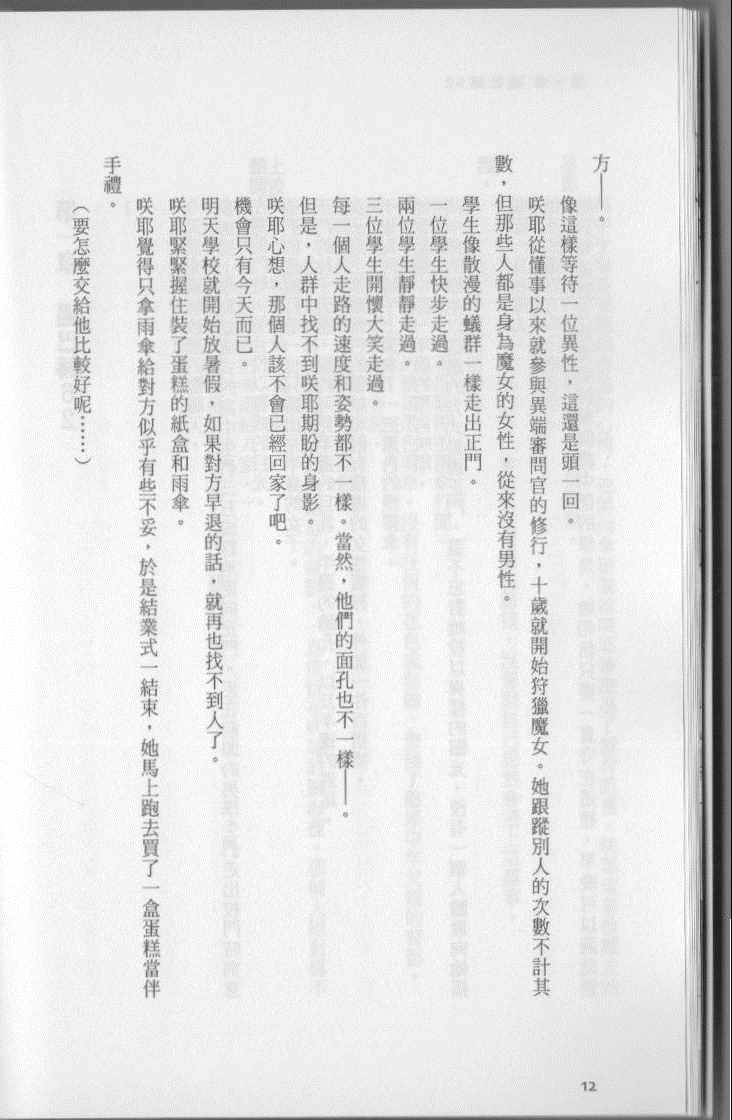 方——。
像這樣等待一位異性，這還是頭一回。
咲耶從懂事以來就參與異端審問官的修行，十歲就開始狩獵魔女。她跟蹤別人的次數不計其
數，但那些人都是身為魔女的女性，從來沒有男性。
學生像散漫的蟻群一樣走出正門。
一位學生快步走過。
兩位學生靜靜走過。
三位學生開懷大笑走過。
每一個人走路的速度和姿勢都不一樣。當然，他們的面孔也不一樣——。
但是，人群中找不到咲耶期盼的身影。
咲耶心想，那個人該不會已經回家了吧。
機會只有今天而已。
明天學校就開始放暑假，如果對方早退的話，就再也找不到人了。
咲耶緊緊握住裝了蛋糕的紙盒和雨傘。
咲耶覺得只拿雨傘給對方似乎有些不妥，於是結業式一結束，她馬上跑去買了一盒蛋糕當伴
手禮。
（要怎麼交給他比較好呢……）
12